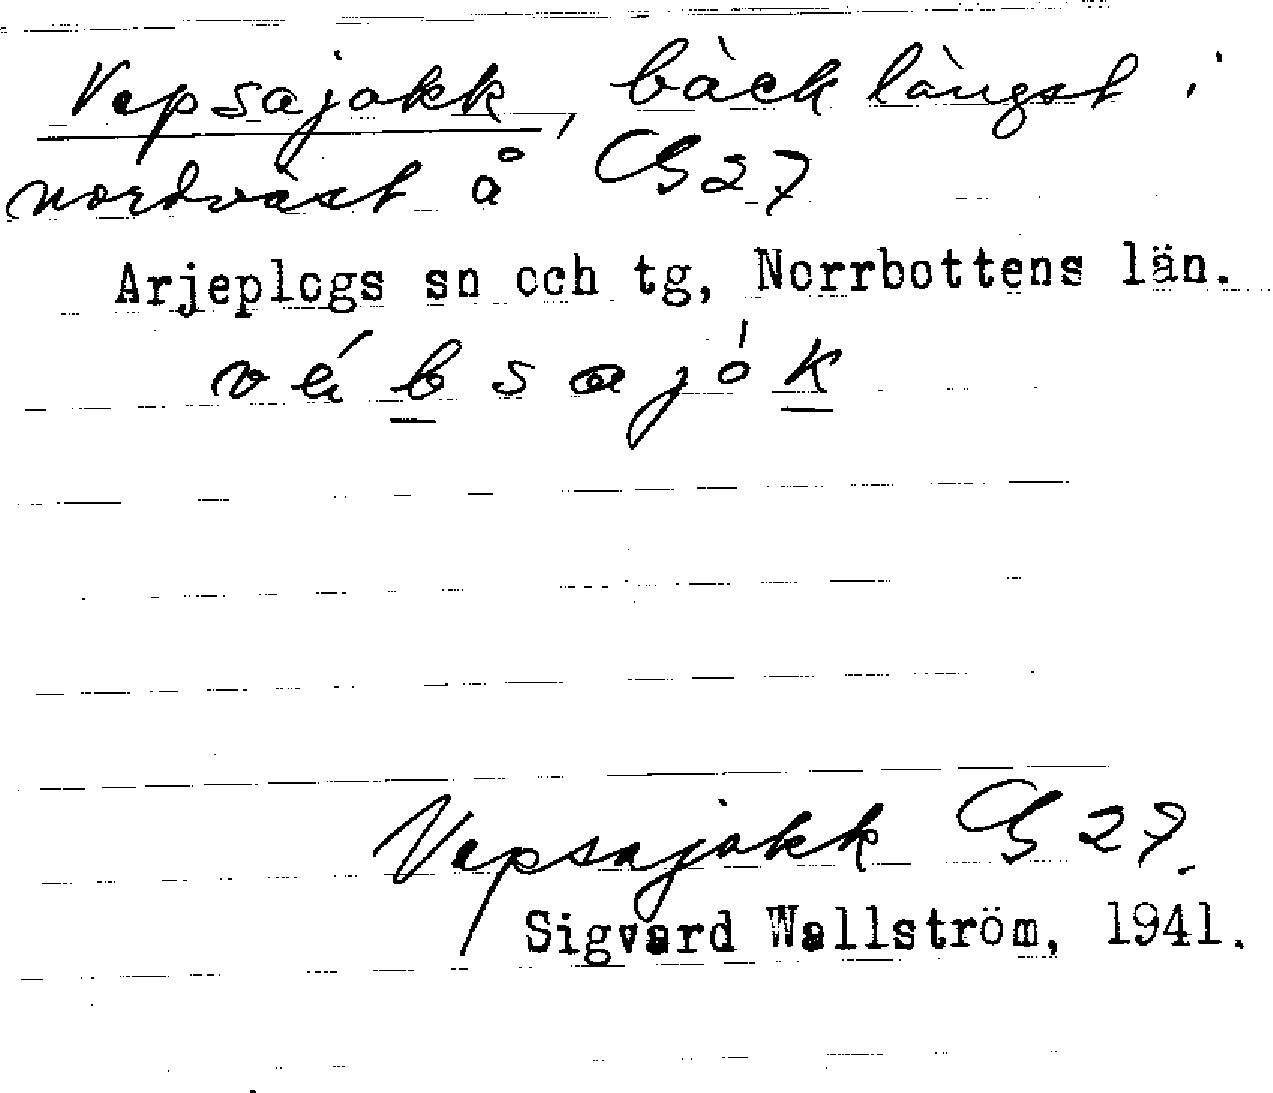 Vepsajokk, bäck längst i
nordväst å G27
Arjeplogs sn och tg, Norrbottens län.
vébsajók
Vepsajokk G 27.
Sigvard Wallström, 1941.